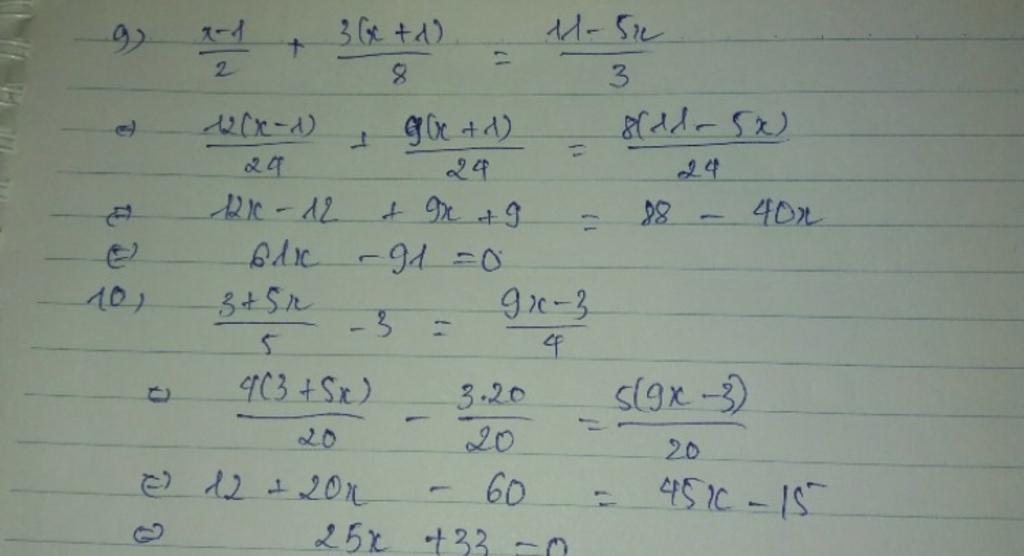 9) \frac{x-1}{2} + \frac{3(x+1)}{8} = \frac{11-5x}{3}
⇔ \frac{12(x-1)}{24} + \frac{9(x+1)}{24} = \frac{8(11-5x)}{24}
⇔ 12x - 12 + 9x + 9 = 88 - 40x
⇔ 61x - 91 = 0
10) \frac{3+5x}{5} - 3 = \frac{9x-3}{4}
⇔ \frac{4(3+5x)}{20} - \frac{3.20}{20} = \frac{5(9x-3)}{20}
⇔ 12 + 20x - 60 = 45x - 15
⇔ 25x + 33 = 0